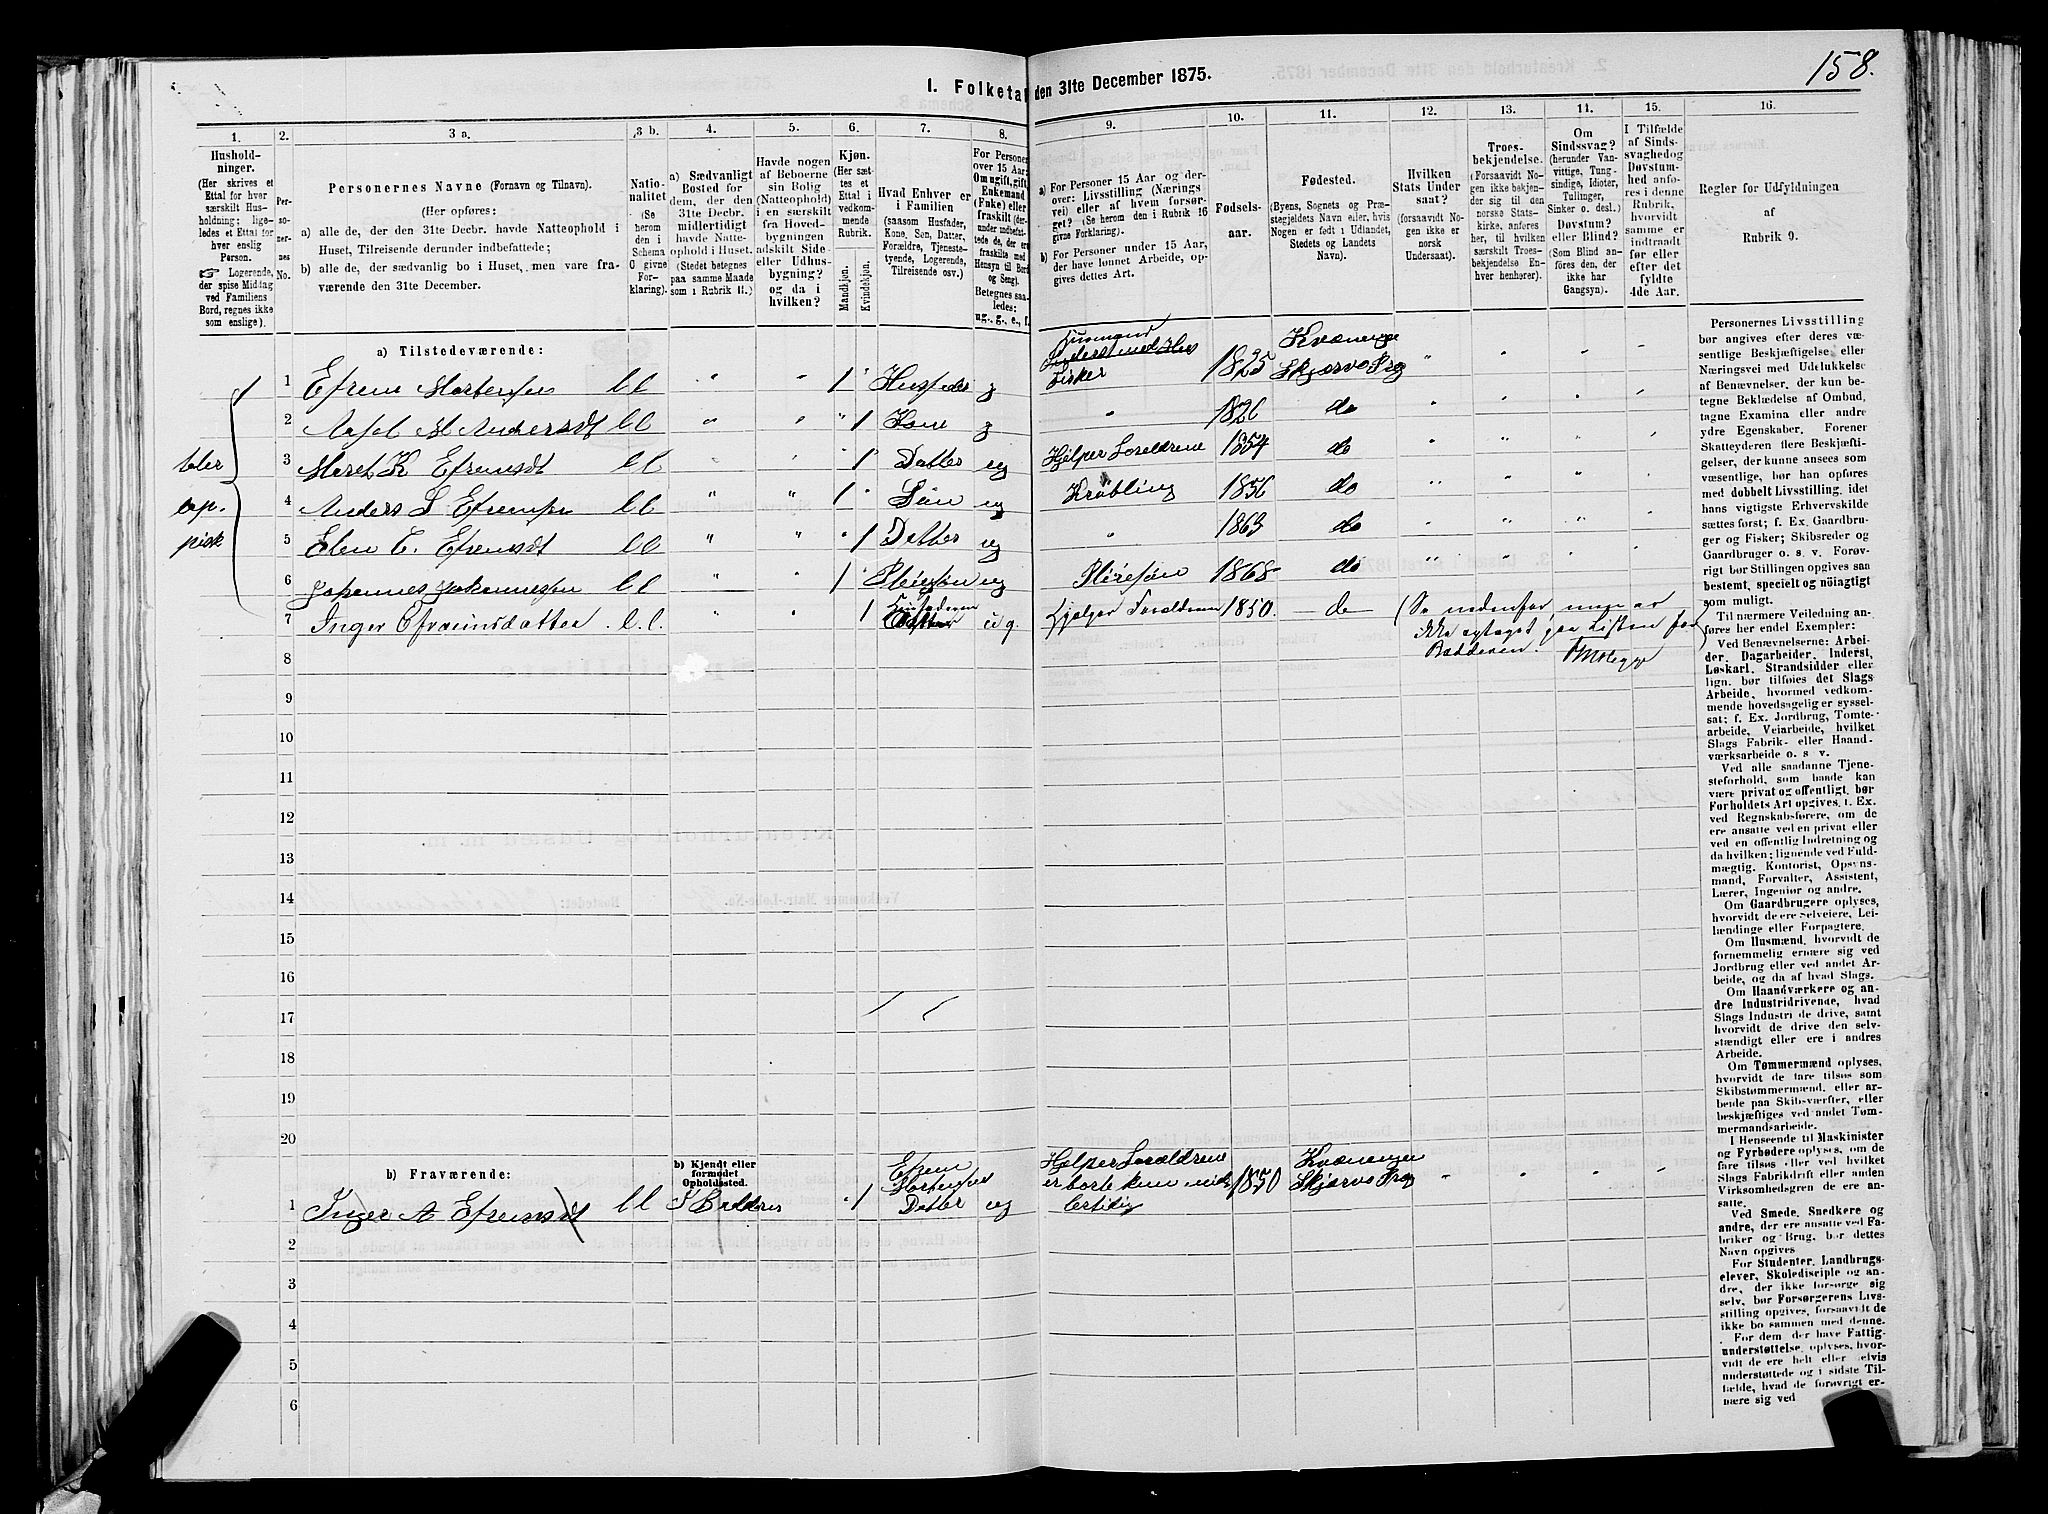 158.
I. Folketæ den 31te December 1875.
1. 2. 3 a. 3 b. 4. 5. 6. 7. 8. 9. 10. 11. 12. 13. 14. 15. 16.
Husholdninger.
(Her skrives et Ettal for hver særskilt Husholdning; ligeledes et Ettal for hver enslig Person.
☞ Logerende, der spise Middag ved Familiens Bord, regnes ikke som enslige).
Personernes No.
Personernes Navne (Fornavn og Tilnavn).
(Her opføres:
a) alle de, der den 31te Decbr. havde Natteophold i Huset, Tilreisende derunder indbefattede;
b) alle de, der sædvanlig bo i Huset, men vare fraværende den 31te December.
Nationalitet (Se herom den i Schema O givne Forklaring).
a) Sædvanligt Bosted for dem, der den 31te Decbr. midlertidigt havde Natteophold i Huset. (Stedet betegnes paa samme Maade som i Rubrik 11.)
Havde nogen af Beboerne sin Bolig (Natteophold) i en særskilt fra Hovedbygningen adskilt Side- eller Udhusbygning? og da i hvilken?
Kjøn. (Her sættes et Ettal i vedkommende Rubrik.
Mandkjøn. Kvindekjøn.
Hvad Enhver er i Familien (saasom Husfader, Kone, Søn, Datter, Forældre, Tjenestetyende, Logerende, Tilreisende osv.)
For Personer over 15 Aar: Om ugift, gift, Enkemand (Enke) eller fraskilt (derunder indbefattede de, der ere fraskilte med Hensyn til Bord og Seng). Betegnes saaledes: ug., g., e., f.
a) For Personer 15 Aar og derover: Livsstilling (Næringsvei) eller af hvem forsørget? (Se herom den i Rubrik 16 givne Forklaring).
b) For Personer under 15 Aar, der have lønnet Arbeide, opgives dettes Art.
Fødselsaar.
Fødested.
(Byens, Sognets og Præstegjeldets Navn eller, hvis Nogen er født i Udlandet, Stedets og Landets Navn).
Hvilken Stats Undersaat?
(forsaavidt Nogen ikke er norsk Undersaat).
Troesbekjendelse.
(Forsaavidt Nogen ikke bekjender sig til den norske Statskirke, anføres her, til hvilken særskilt Troesbekjendelse Enhver henhører).
Om Sindssvag? (herunder Vanvittige, Tungsindige, Idioter, Tullinger, Sinker o. desl.) Døvstum? eller Blind? (Som Blind anføres den, der ikke har Gangsyn).
I Tilfælde af Sindssvaghed og Døvstumhed anføres i denne Rubrik, hvorvidt samme er indtraadt før eller efter det fyldte 4de Aar.
Regler for Udfyldningen
af
Rubrik 9.
a) Tilstedeværende:
1 Efrem Mortensen l l " " 1 " Husfader g Husmand Fisker 1825 Kvænangen Skjærvø Prg " " " "
2 M Andersdt l l " " " 1 Kone g " 1826 do " " " "
3 Maret K Efremsdt l l " 1 Datter ug Hjelper Foreldrene 1854 do " " " "
4 Anders S Efremsen l l " " 1 " Søn ug 1856 do " " " "
5 Elen C. Efremsdt l l " " " 1 Datter ug " 1863 do " " " "
6 Johannes Johannessen l l " " 1 " Pleiesøn ug Pleiesøn 1868 do " " " "
7 Inger Efraimsdatter l. l. " " 1 Husfaderens Datter ug. Hjelper Forældrene 1850. do (Se nedenfor
ikke optaget paa Listen for
Badderen.
8
9
10
11
12
13
14
15
16
17
18
19
20
b) Fraværende:
b) Kjendt eller formodet Opholdssted.
1 Inger A Efremsdt l l Badderen " 1 Efrem Mortensens Datter ug Hjelper Foreldrene er borte kun midlertidig 1850 Kvænangen Skjærvø Prg " " " "
2
3
4
5
6
Personernes Livsstilling bør angives efter deres væsentlige Beskjæftigelse eller Næringsvei med Udelukkelse af Benævnelser, der kun betegne Beklædelse af Ombud, tagne Examina eller andre ydre Egenskaber. Forener Skatteyderen flere Beskjæftigelser, der kunne ansees som væsentlige, bør han opføres med dobbelt Livsstilling, idet hans vigtigste Erhvervskilde sættes først; f. Ex. Gaardbruger og Fisker; Skibsreder og Gaardbruger o. s. v. Forøvrigt bør Stillingen opgives saa bestemt, specielt og nøiagtigt som muligt.
Til nærmere Veiledning anføres her endel Exempler:
Ved Benævnelserne: Arbeider, Dagarbeider, Inderst, Løskarl, Strandsidder eller lign. bør tilføies det Slags Arbeide, hvormed vedkommende hovedsagelig er sysselsat; f. Ex. Jordbrug, Tomtearbeide, Veiarbeide, hvilket Slags Fabrik- eller Haandværksarbeide o. s. v.
Ved alle saadanne Tjenesteforhold, som baade kan være privat og offentligt, bør Forholdets Art opgives, f. Ex. ved Regnskabsførere, om de ere ansatte ved en privat eller ved en offentlig Indretning og da hvilken; lignende ved Fuldmægtig, Kontorist, Opsynsmand, Forvalter, Assistent, Lærer, Ingeniør og andre.
Om Gaardbrugere oplyses, hvorvidt de ere Selveiere, Leilændinge eller Forpagtere.
Om Husmænd, hvorvidt de fornemmelig ernære sig ved Jordbrug eller ved andet Arbeide, og da af hvad Slags.
Om Haandværkere og andre Industridrivende, hvad Slags Industri de drive, samt hvorvidt de drive den selvstændigt eller ere i andres Arbeide.
Om Tømmermænd oplyses, hvorvidt de fare tilsøs som Skibstømmermænd, eller arbeide paa Skibsværfter, eller beskjæftiges ved andet Tømmermandsarbeide.
I Henseende til Maskinister og Fyrbødere oplyses, om de fare tilsøs eller ved hvilket Slags Fabrikdrift eller anden Virksomhedsgren de ere ansatte.
Ved Smede, Snedkere og andre, der ere ansatte ved Fabriker og Brug, bør dettes Navn opgives
For Studenter, Landbrugselever, Skoledisciple og andre, der ikke forsørge sig selv, bør Forsørgerens Livsstilling opgives, forsaavidt de ikke bo sammen med denne.
For dem, der have Fattigunderstøttelse, oplyses, hvorvidt de ere helt eller delvis understøttede og i sidste Tilfælde, hvad de forøvrigt ernære sig ved